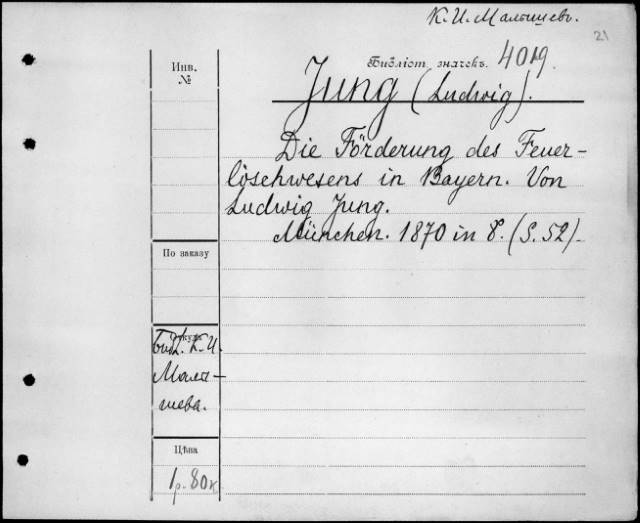 К. И. Малышевъ.
21
Инв.
№
Библіот. значекъ. 4019.
Jung (Ludwig).
Die Förderung des Feuer-
löschwesens in Bayern. Von
Ludwig Jung.
München. 1870 in 8. (S. 52).
По заказу
Откуда
Библ. К. И.
Малы-
шева.
Цѣна
1р. 80к